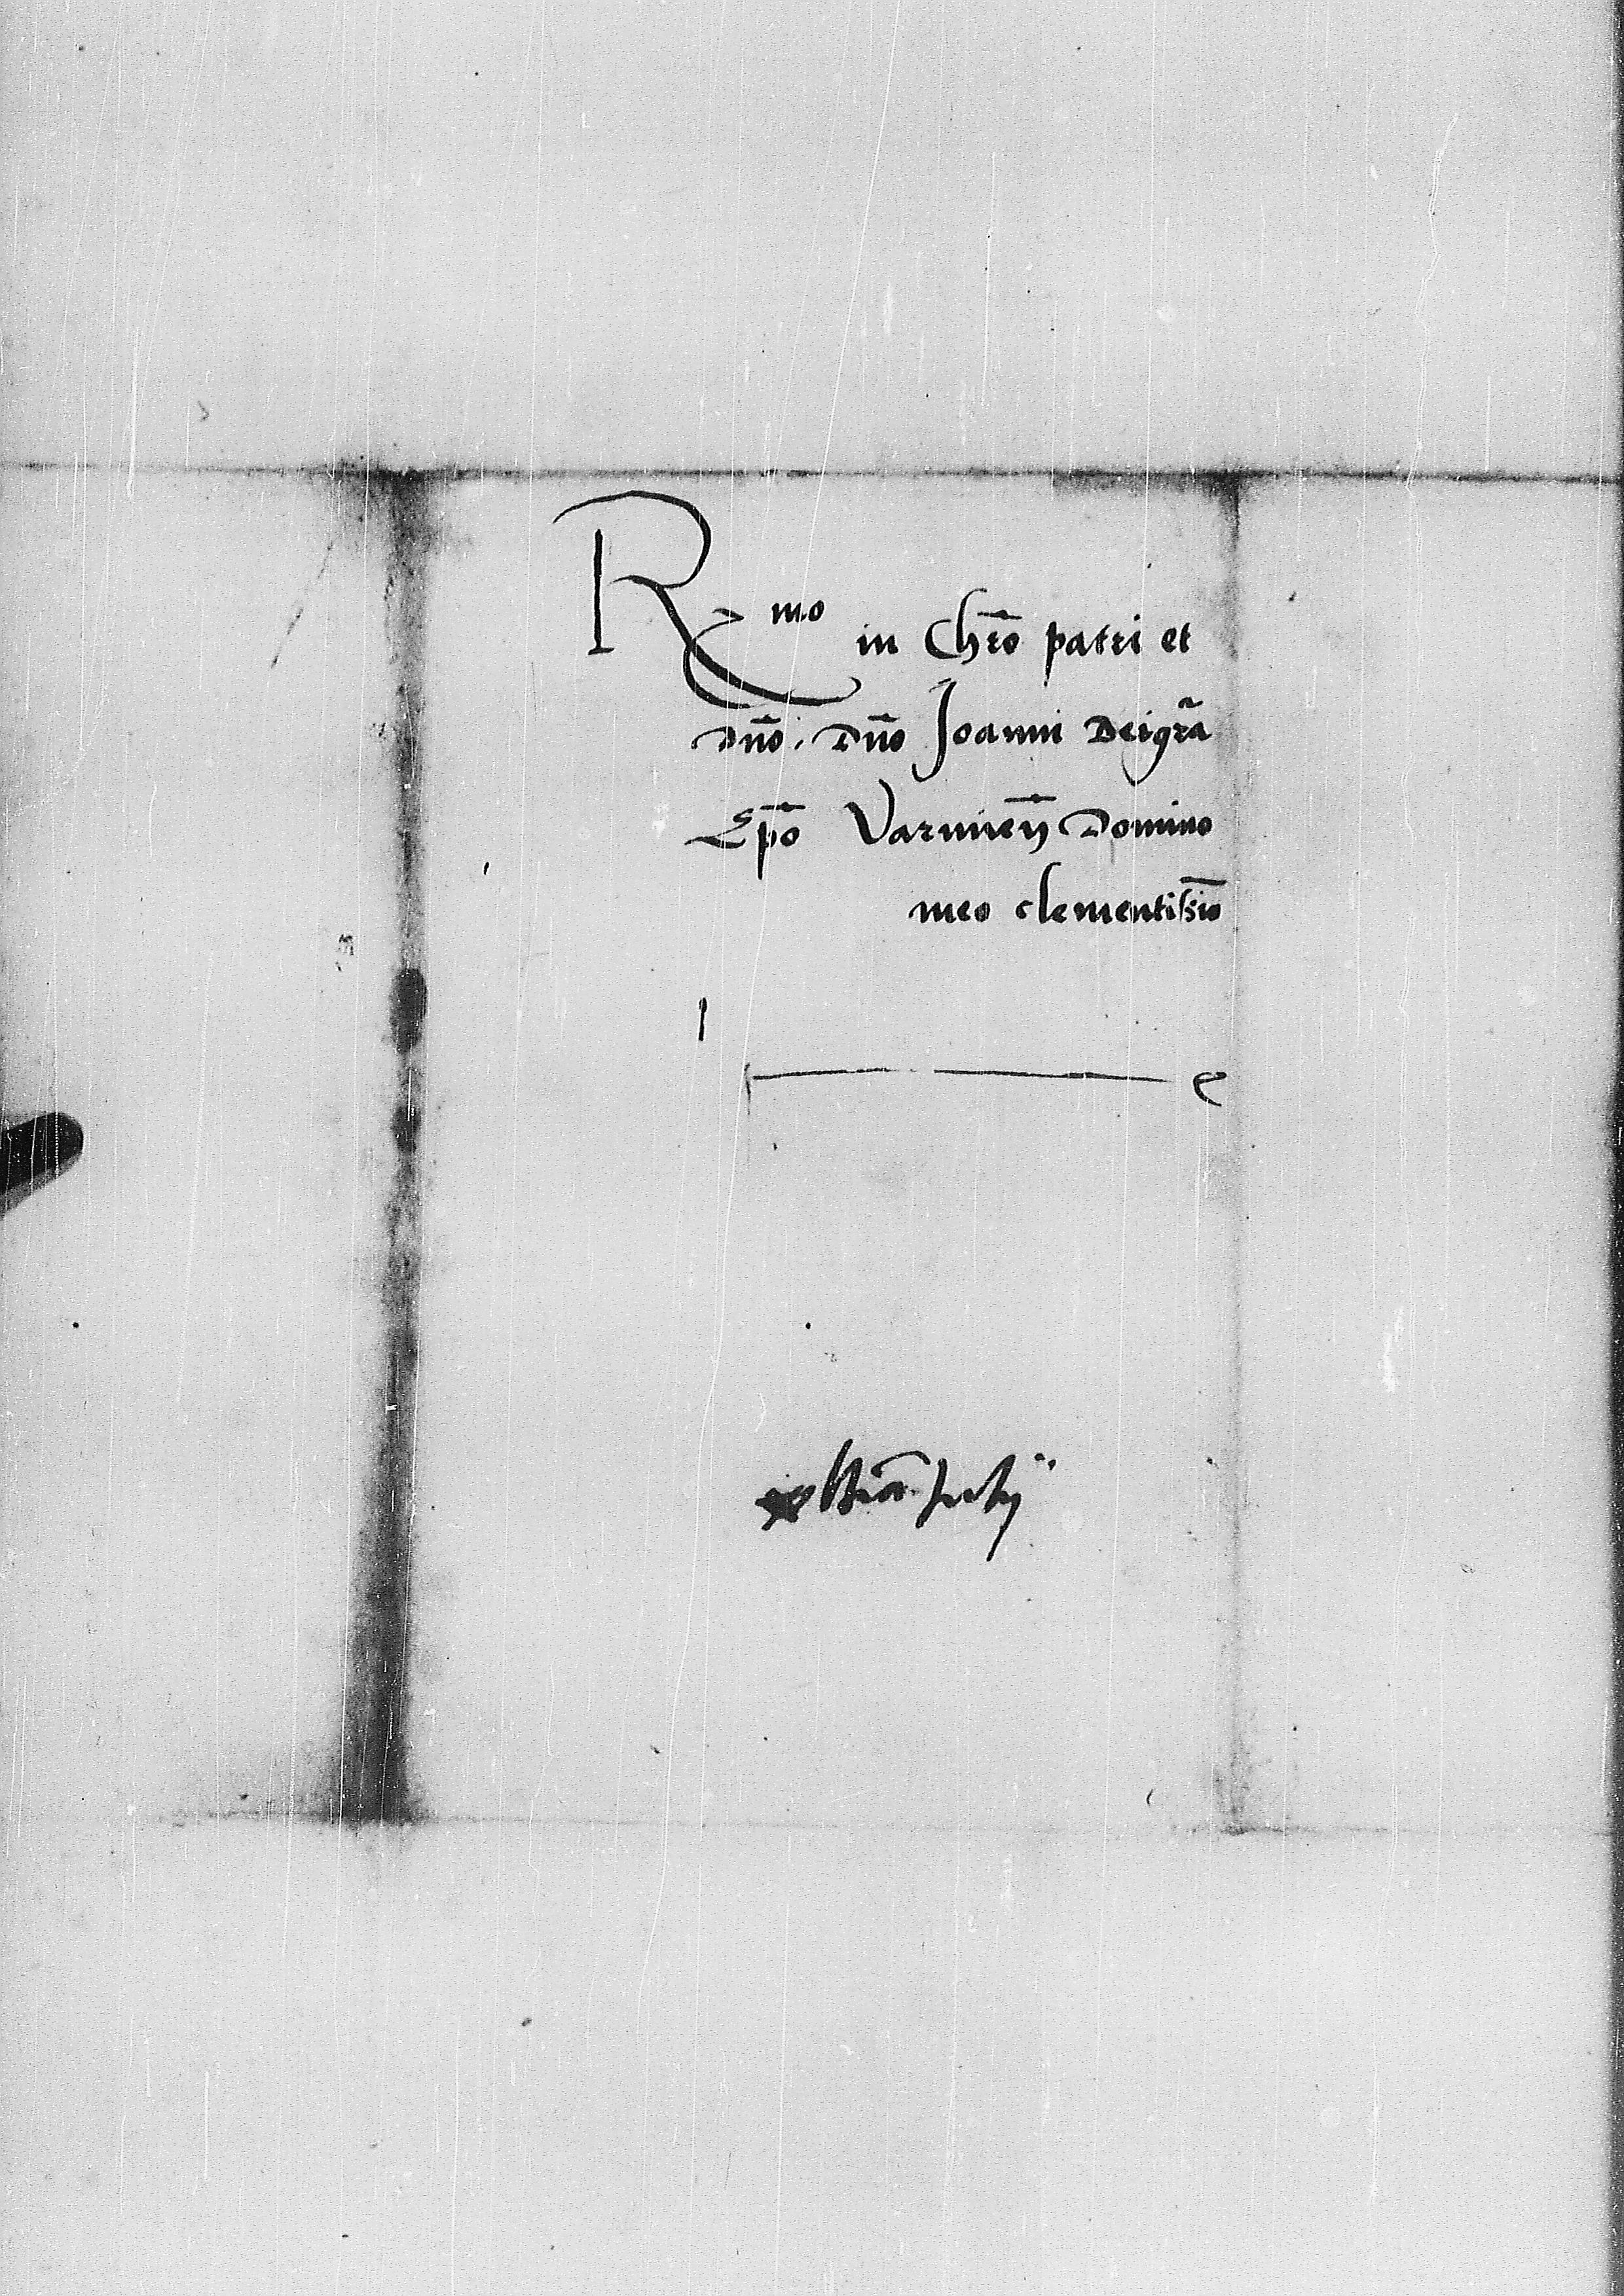 R mo in Chr̄o patri et
Dn̄o. Dn̄o Joanni Dei gr̄a
Ep̄o Varmien̄ Domino
meo clementiss̄io